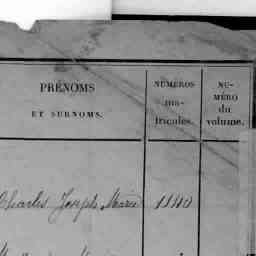 PRÉNOMS
ET SURNOMS.
NUMÉROS
ma-
tricules.
NU-
MÉRO
du
volume.
Charles Joseph Marie 1140